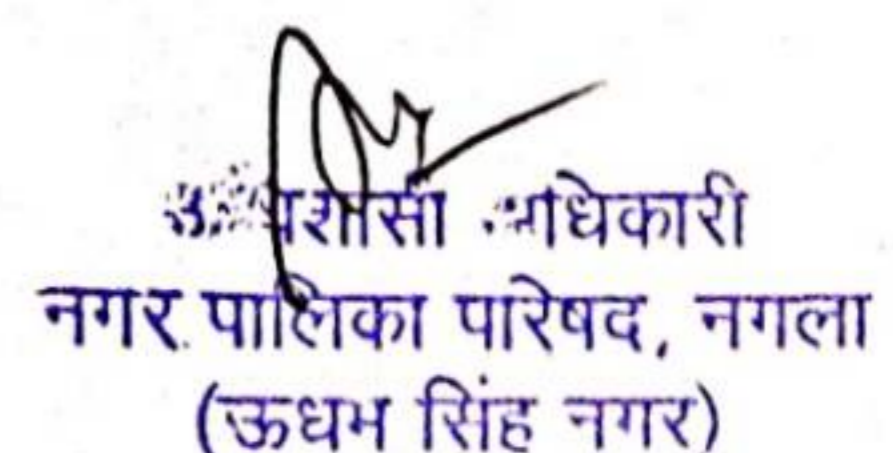 अधिकारी
नगर पालिका परिषद, नगला
(ऊधम सिंह नगर)